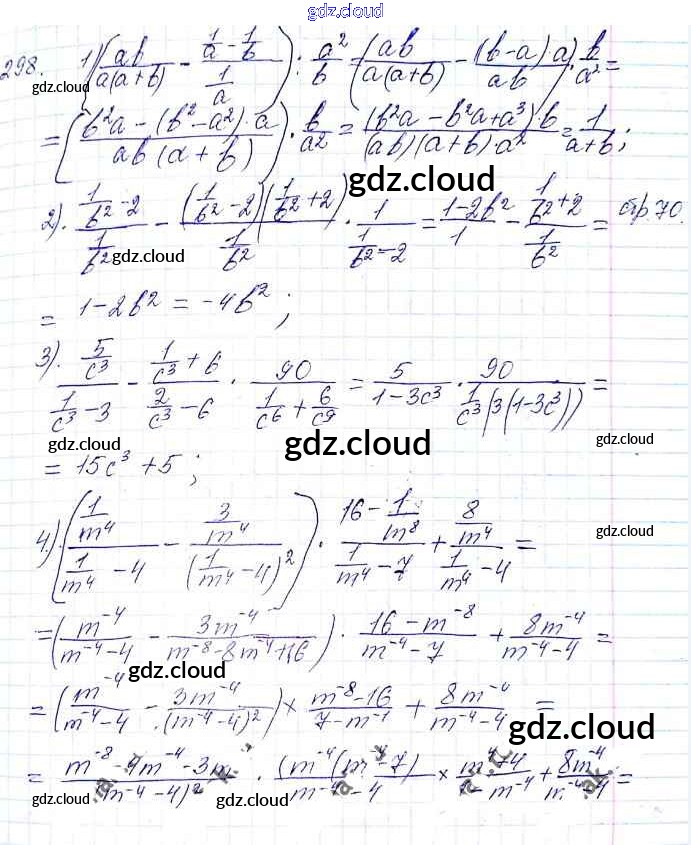 gdz.cloud
298. 1) (ab/(a(a+b)) - (1/a - 1/b)/(1/a)) : a²/b = (ab/(a(a+b)) - (b-a)·a/(ab)) · b/a² =
gdz.cloud gdz.cloud
= ((b²a - (b² - a²)·a)/(ab(a+b))) · b/a² = ((b²a - b²a + a³)·b)/((ab)(a+b)·a²) = 1/(a+b);
gdz.cloud
2). (1/b² - 2)/(1/b²) - ((1/b² - 2)(1/b² + 2))/(1/b²) · 1/(1/b² - 2) = (1-2b²)/1 - (1/b² + 2)/(1/b²) = стр. 70.
gdz.cloud
= 1 - 2b² = -4b²;
3). (5/c³)/(1/c³ - 3) - (1/c³ + 6)/(2/c³ - 6) · 90/(1/c⁶ + 6/c⁹) = 5/(1-3c³) · 90/(1/c³(3(1-3c³))) =
gdz.cloud gdz.cloud gdz.cloud
= 15c³ + 5;
4.) ((1/m⁴)/(1/m⁴ - 4) - (3/m⁴)/(1/m⁴ - 4)²) · (16 - 1/m⁸)/(1/m⁴ - 7) + (8/m⁴)/(1/m⁴ - 4) =
gdz.cloud
= (m⁻⁴/(m⁻⁴ - 4) - 3m⁻⁴/(m⁻⁸ - 8m⁻⁴ + 16)) · (16 - m⁻⁸)/(m⁻⁴ - 7) + 8m⁻⁴/(m⁻⁴ - 4) =
gdz.cloud
= (m⁻⁴/(m⁻⁴ - 4) - 3m⁻⁴/(m⁻⁴ - 4)²) × (m⁻⁸ - 16)/(7 - m⁻¹) + 8m⁻⁴/(m⁻⁴ - 4) =
gdz.cloud
= (m⁻⁸ - 4m⁻⁴ - 3m)/(m⁻⁴ - 4)² · (m⁻⁴(m⁻⁴ - 7))/(m⁻⁴ - 4) × + 8m⁻⁴ =
gdz.cloud gdz.cloud